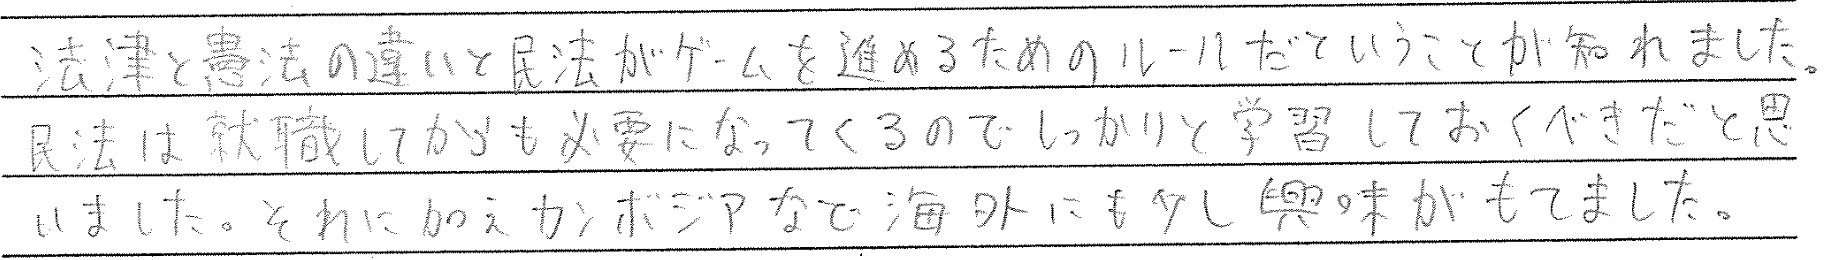 法津と憲法の違いと民法がゲームを進めるためのルールだということが知れました。
民法は就職してからも必要になってくるのでしっかりと学習しておくべきだと思
いました。それに加えカンボジアなで海外にも少し興味がもてました。